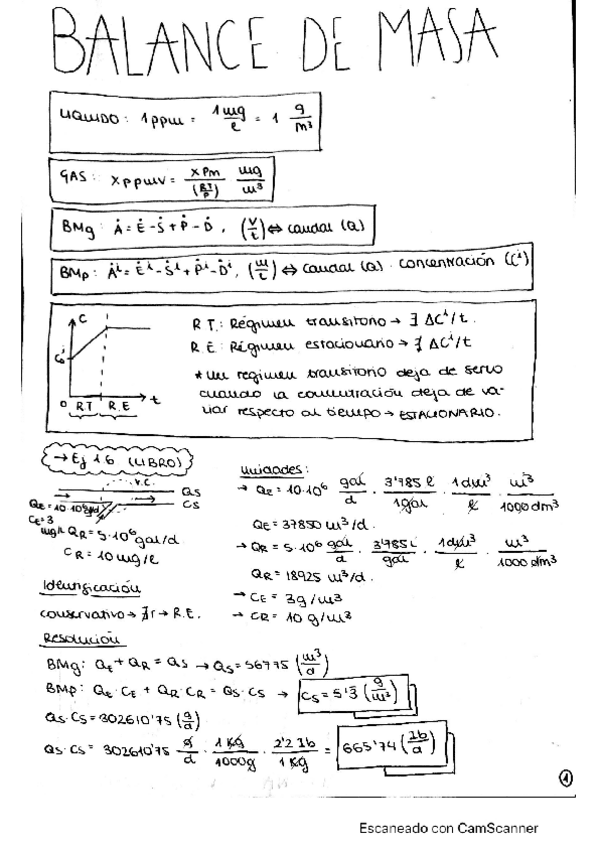 BALANCE DE MASA
LIQUIDO: 1 ppm = 1 mg/l = 1 g/m³
GAS: x ppmv = x Pm/(RT/P) mg/m³
BMg: Ȧ = Ė - Ṡ + Ṗ - Ḋ, (V/t) ⇔ caudal (Q)
BMp: Ȧⁱ = Ėⁱ - Ṡⁱ + Ṗⁱ - Ḋⁱ, (m/t) ⇔ caudal (Q) · concentración (Cⁱ)
C
R.T.: Régimen transitorio → ∃ ΔCⁱ/t
R.E: Régimen estacionario → ∄ ΔCⁱ/t
C₀ⁱ
* Un regimen transitorio deja de serlo
cuando la concentración deja de va-
riar respecto al tiempo → ESTACIONARIO.
0 RT R.E t
→ Ej 1.6 (LIBRO)
V.C.
QS
CS
QE = 10·10⁶ gal/d
CE = 3 mg/l
QR = 5·10⁶ gal/d
CR = 10 mg/l
Unidades:
→ QE = 10·10⁶ gal/d · 3'785 l/1 gal · 1 dm³/l · m³/1000 dm³
QE = 37850 m³/d.
→ QR = 5·10⁶ gal/d · 3'785 l/gal · 1 dm³/l · m³/1000 dm³
QR = 18925 m³/d.
→ CE = 3 g/m³
→ CR = 10 g/m³
Identificación
conservativo → ∄r → R.E.
Resolución
BMg: QE + QR = QS → QS = 56775 (m³/d)
BMp: QE·CE + QR·CR = QS·CS → CS = 5'3 (g/m³)
QS·CS = 302610'75 (g/d)
QS·CS = 302610'75 g/d · 1 Kg/1000g · 2'2 lb/1 Kg = 665'74 (lb/d)
1
Escaneado con CamScanner